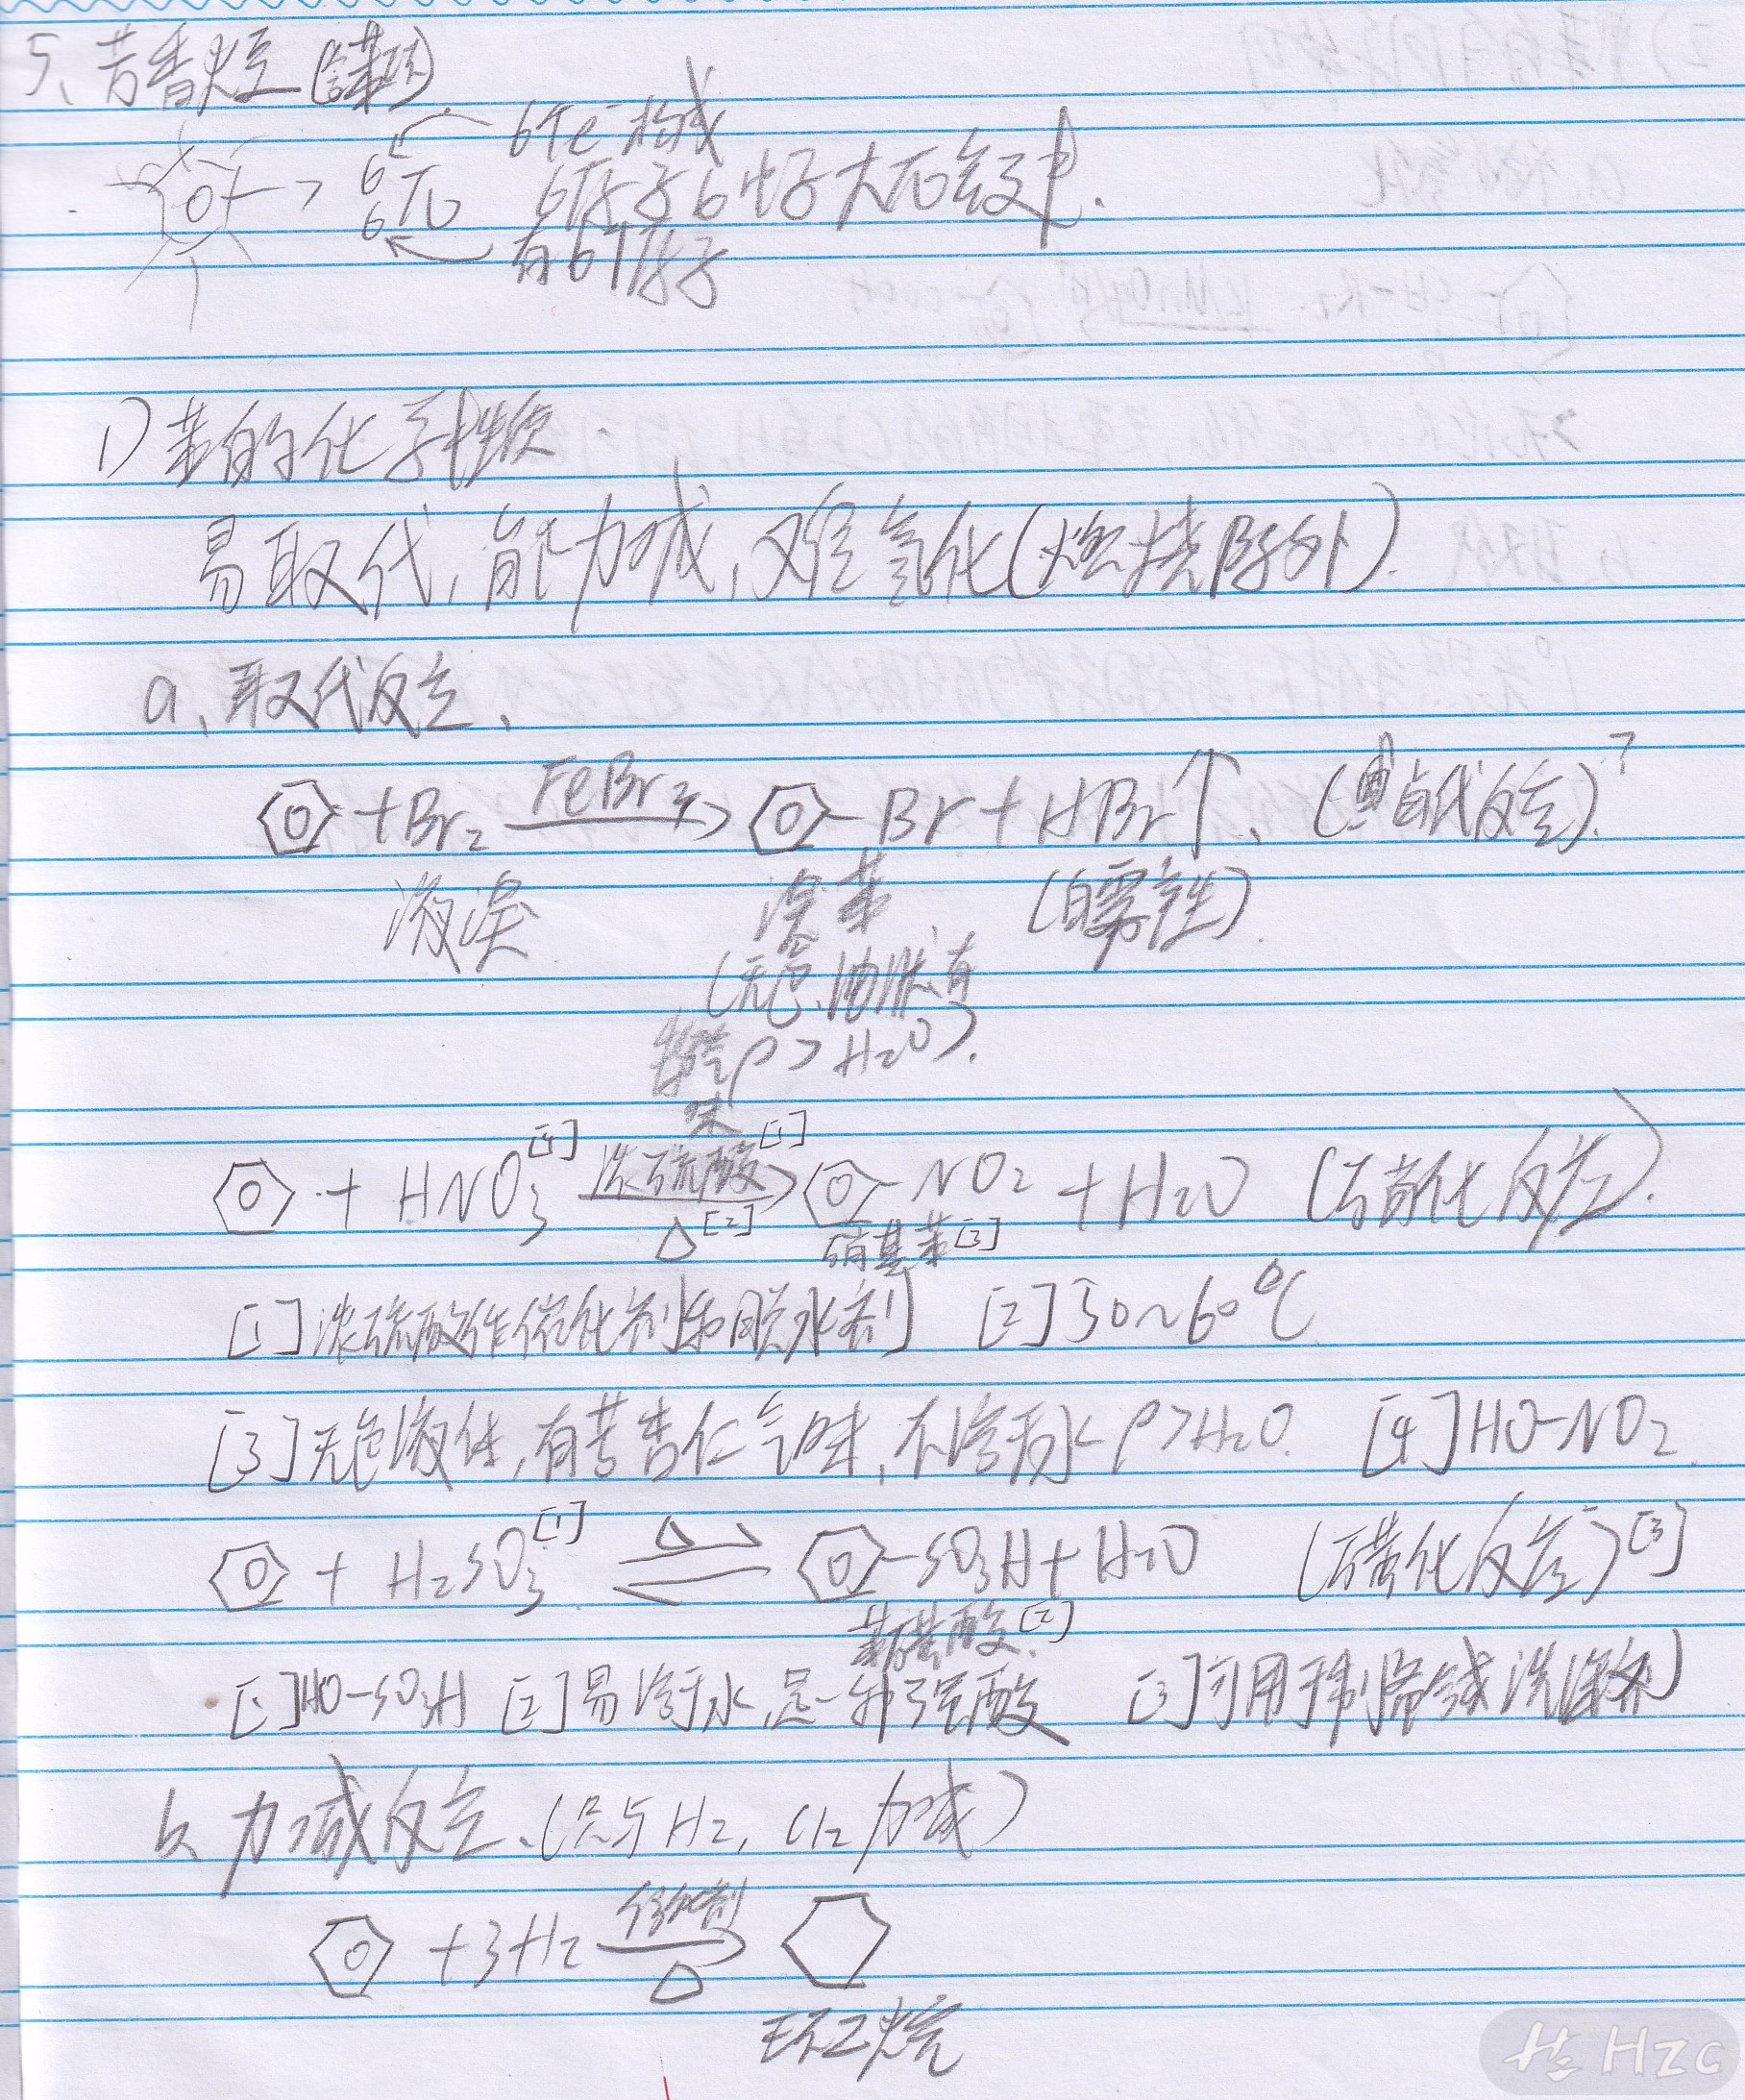 5、芳香烃(含苯环)
6个e⁻构成
6 6 π 6原子6电子大π键
有6个原子
1) 苯的化学性质
易取代,能加成,难氧化(燃烧除外).
a、取代反应、
+Br₂ FeBr₃ -Br + HBr↑、(卤代反应)
液溴 溴苯 (白雾产生)
(无色、油状、有
特殊 ρ>H₂O).
味
+ HNO₃[4] 浓硫酸[1] △[2] -NO₂ + H₂O (硝化反应).
硝基苯[3]
[1]浓硫酸作催化剂和脱水剂 [2]50~60℃
[3]无色液体,有苦杏仁气味,不溶于水 ρ>H₂O. [4]HO-NO₂.
+ H₂SO₃[1] △ ⇌ -SO₃H + H₂O (磺化反应)[3]
苯磺酸[2]
[1]HO-SO₃H [2]易溶于水,是一种强酸 [3]可用于制备合成洗涤剂
b、加成反应、(只与H₂, Cl₂加成)
+3H₂ 催化剂 △
环己烷
HZC